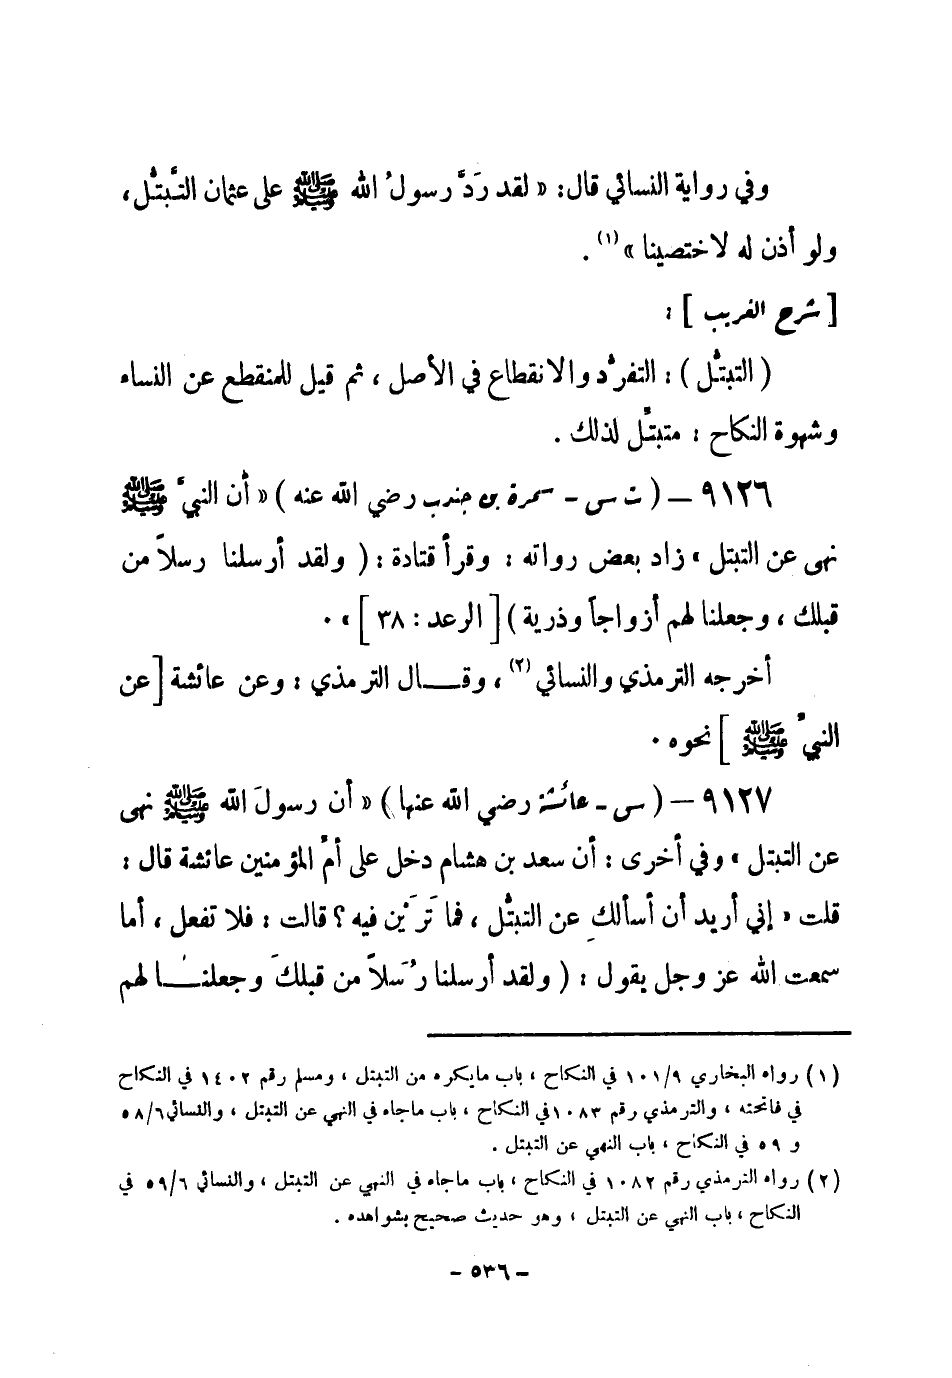 وفي رواية النسائي قال: « لقد رَدَّ رسولُ الله ﷺ على عثمان التَّبتُّل،
ولو أذن له لاختصينا » (١) .
[ شرح الغريب ] :
( التبتُّل ) : التفرُّد والانقطاع في الأصل ، ثم قيل للمنقطع عن النساء
وشهوة النكاح : متبتِّل لذلك .
٩١٢٦ – ( ت س - سمرة بن جندب رضي الله عنه ) « أن النبيَّ ﷺ
نهى عن التبتل » زاد بعض رواته : وقرأ قتادة : ( ولقد أرسلنا رسلاً من
قبلك ، وجعلنا لهم أزواجاً وذرية ) [ الرعد : ٣٨ ] » .
أخرجه الترمذي والنسائي (٢) ، وقــال الترمذي : وعن عائشة [ عن
النبيِّ ﷺ ] نحوه .
٩١٢٧ – ( س - عائشة رضي الله عنها ) « أن رسولَ الله ﷺ نهى
عن التبتل » وفي أخرى : أن سعد بن هشام دخل على أمِّ المؤمنين عائشة قال :
قلت « إني أريد أن أسألكِ عن التبتُّل ، فما تَرَيْن فيه ؟ قالت : فلا تفعل ، أما
سمعت الله عز وجل يقول : ( ولقد أرسلنا رُسَلاً من قبلكَ وجعلنــا لهم
(١) رواه البخاري ١٠١/٩ في النكاح ، باب مايكره من التبتل ، ومسلم رقم ١٤٠٢ في النكاح
في فاتحته ، والترمذي رقم ١٠٨٣ في النكاح ، باب ماجاء في النهي عن التبتل ، والنسائي ٥٨/٦
و ٥٩ في النكاح ، باب النهي عن التبتل .
(٢) رواه الترمذي رقم ١٠٨٢ في النكاح ، باب ماجاء في النهي عن التبتل ، والنسائي ٥٩/٦ في
النكاح ، باب النهي عن التبتل ، وهو حديث صحيح بشواهده .
– ٥٣٦ –